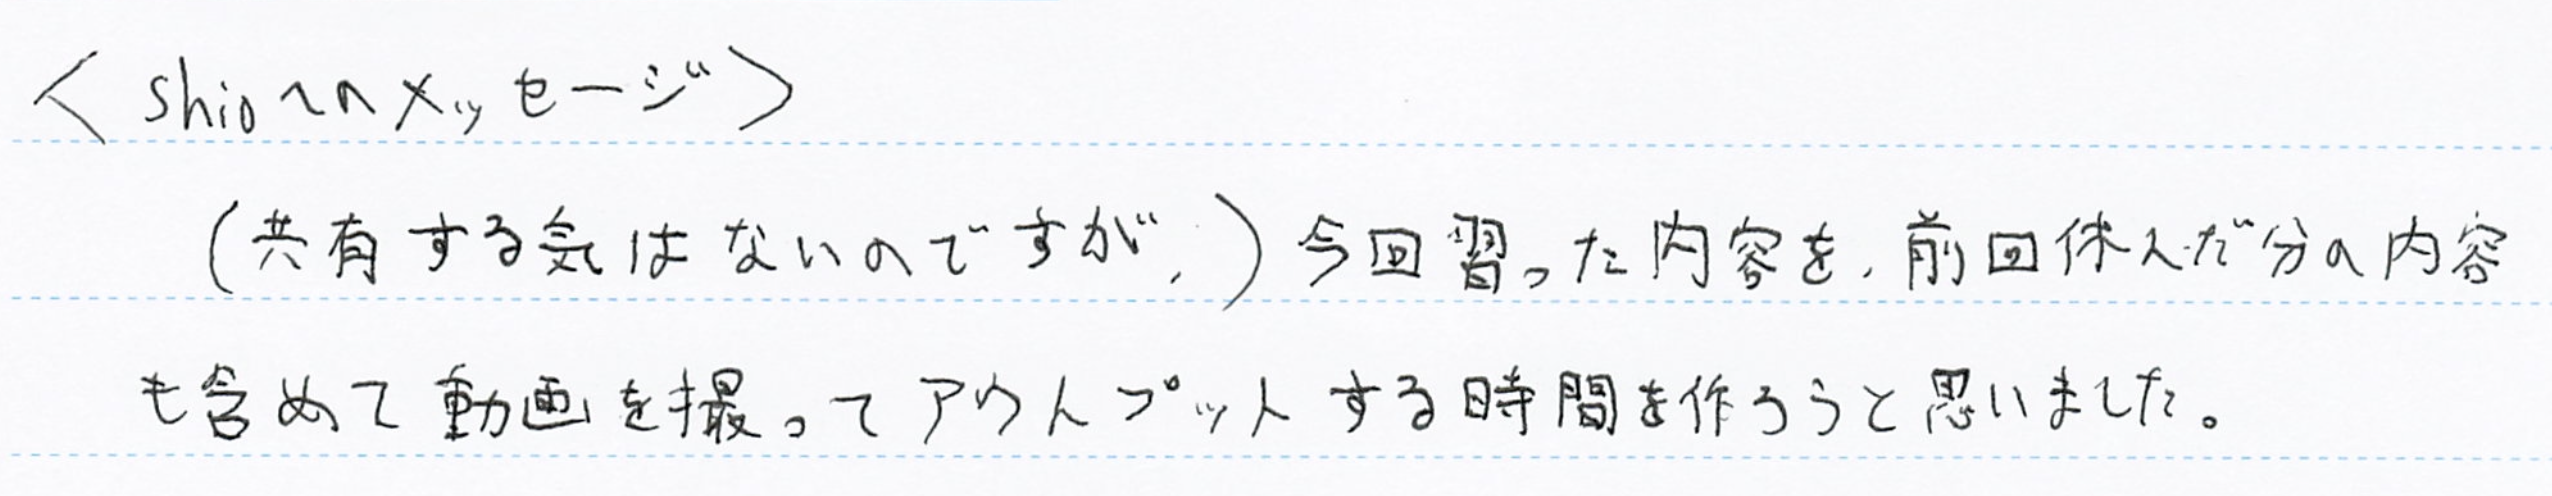 <shioへのメッセージ>
(共有する気はないのですが、)今回習った内容を、前回休んだ分の内容
も含めて動画を撮ってアウトプットする時間を作ろうと思いました。